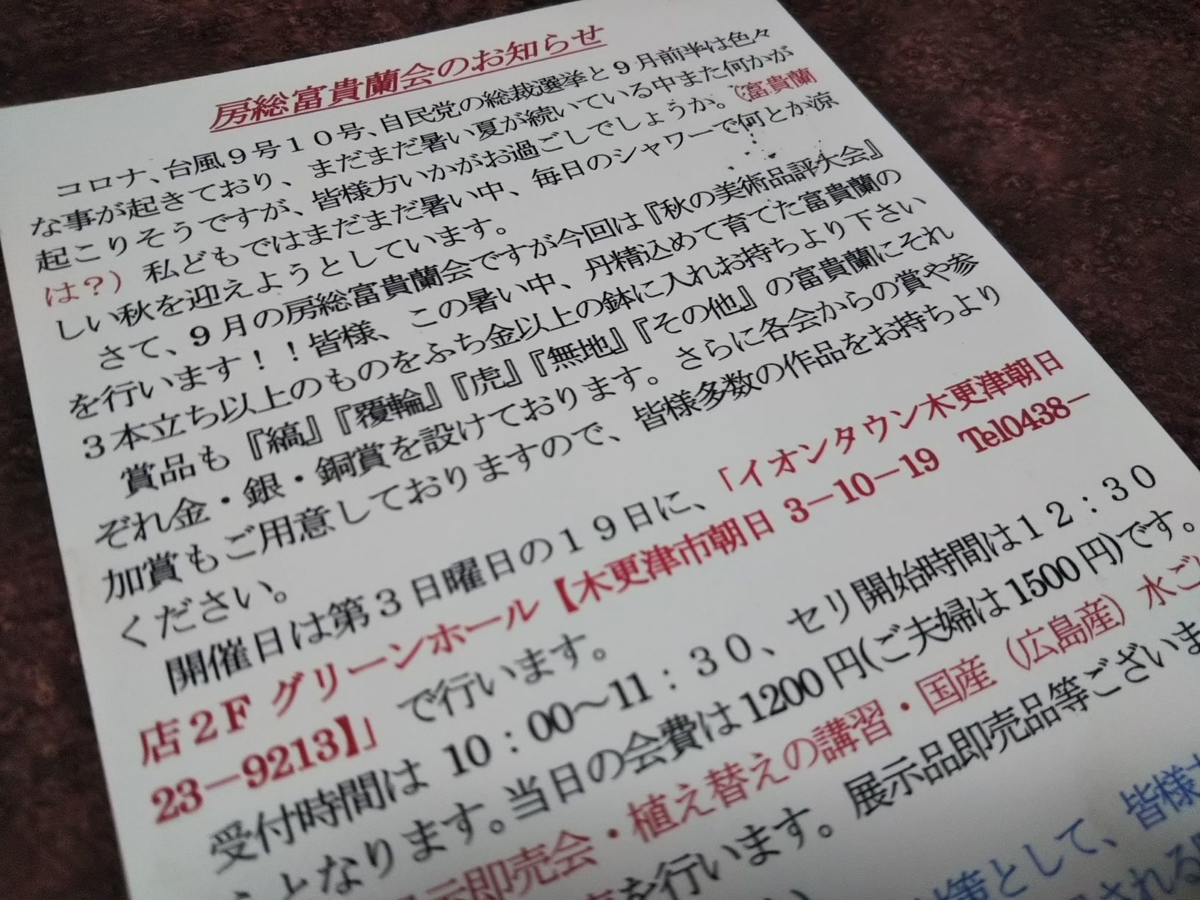 房総富貴蘭会のお知らせ
コロナ、台風９号１０号、自民党の総裁選挙と９月前半は色々
な事が起きており、まだまだ暑い夏が続いている中また何かが
起こりそうですが、皆様方いかがお過ごしでしょうか。（富貴蘭
は？）私どもではまだまだ暑い中、毎日のシャワーで何とか涼
しい秋を迎えようとしています。
さて、９月の房総富貴蘭会ですが今回は『秋の美術品評大会』
を行います！！皆様、この暑い中、丹精込めて育てた富貴蘭の
３本立ち以上のものをふち金以上の鉢に入れお持ちより下さい
賞品も『縞』『覆輪』『虎』『無地』『その他』の富貴蘭にそれ
ぞれ金・銀・銅賞を設けております。さらに各会からの賞や参
加賞もご用意しておりますので、皆様多数の作品をお持ちより
ください。
開催日は第３日曜日の１９日に、「イオンタウン木更津朝日
店２F グリーンホール【木更津市朝日 3－10－19 Tel0438－
23－9213】」で行います。
受付時間は 10：00～11：30、セリ開始時間は１２：３０
となります。当日の会費は 1200 円(ご夫婦は 1500 円)です。
示即売会・植え替えの講習・国産（広島産）水ご
を行います。展示品即売品等ございま
策として、皆様
される